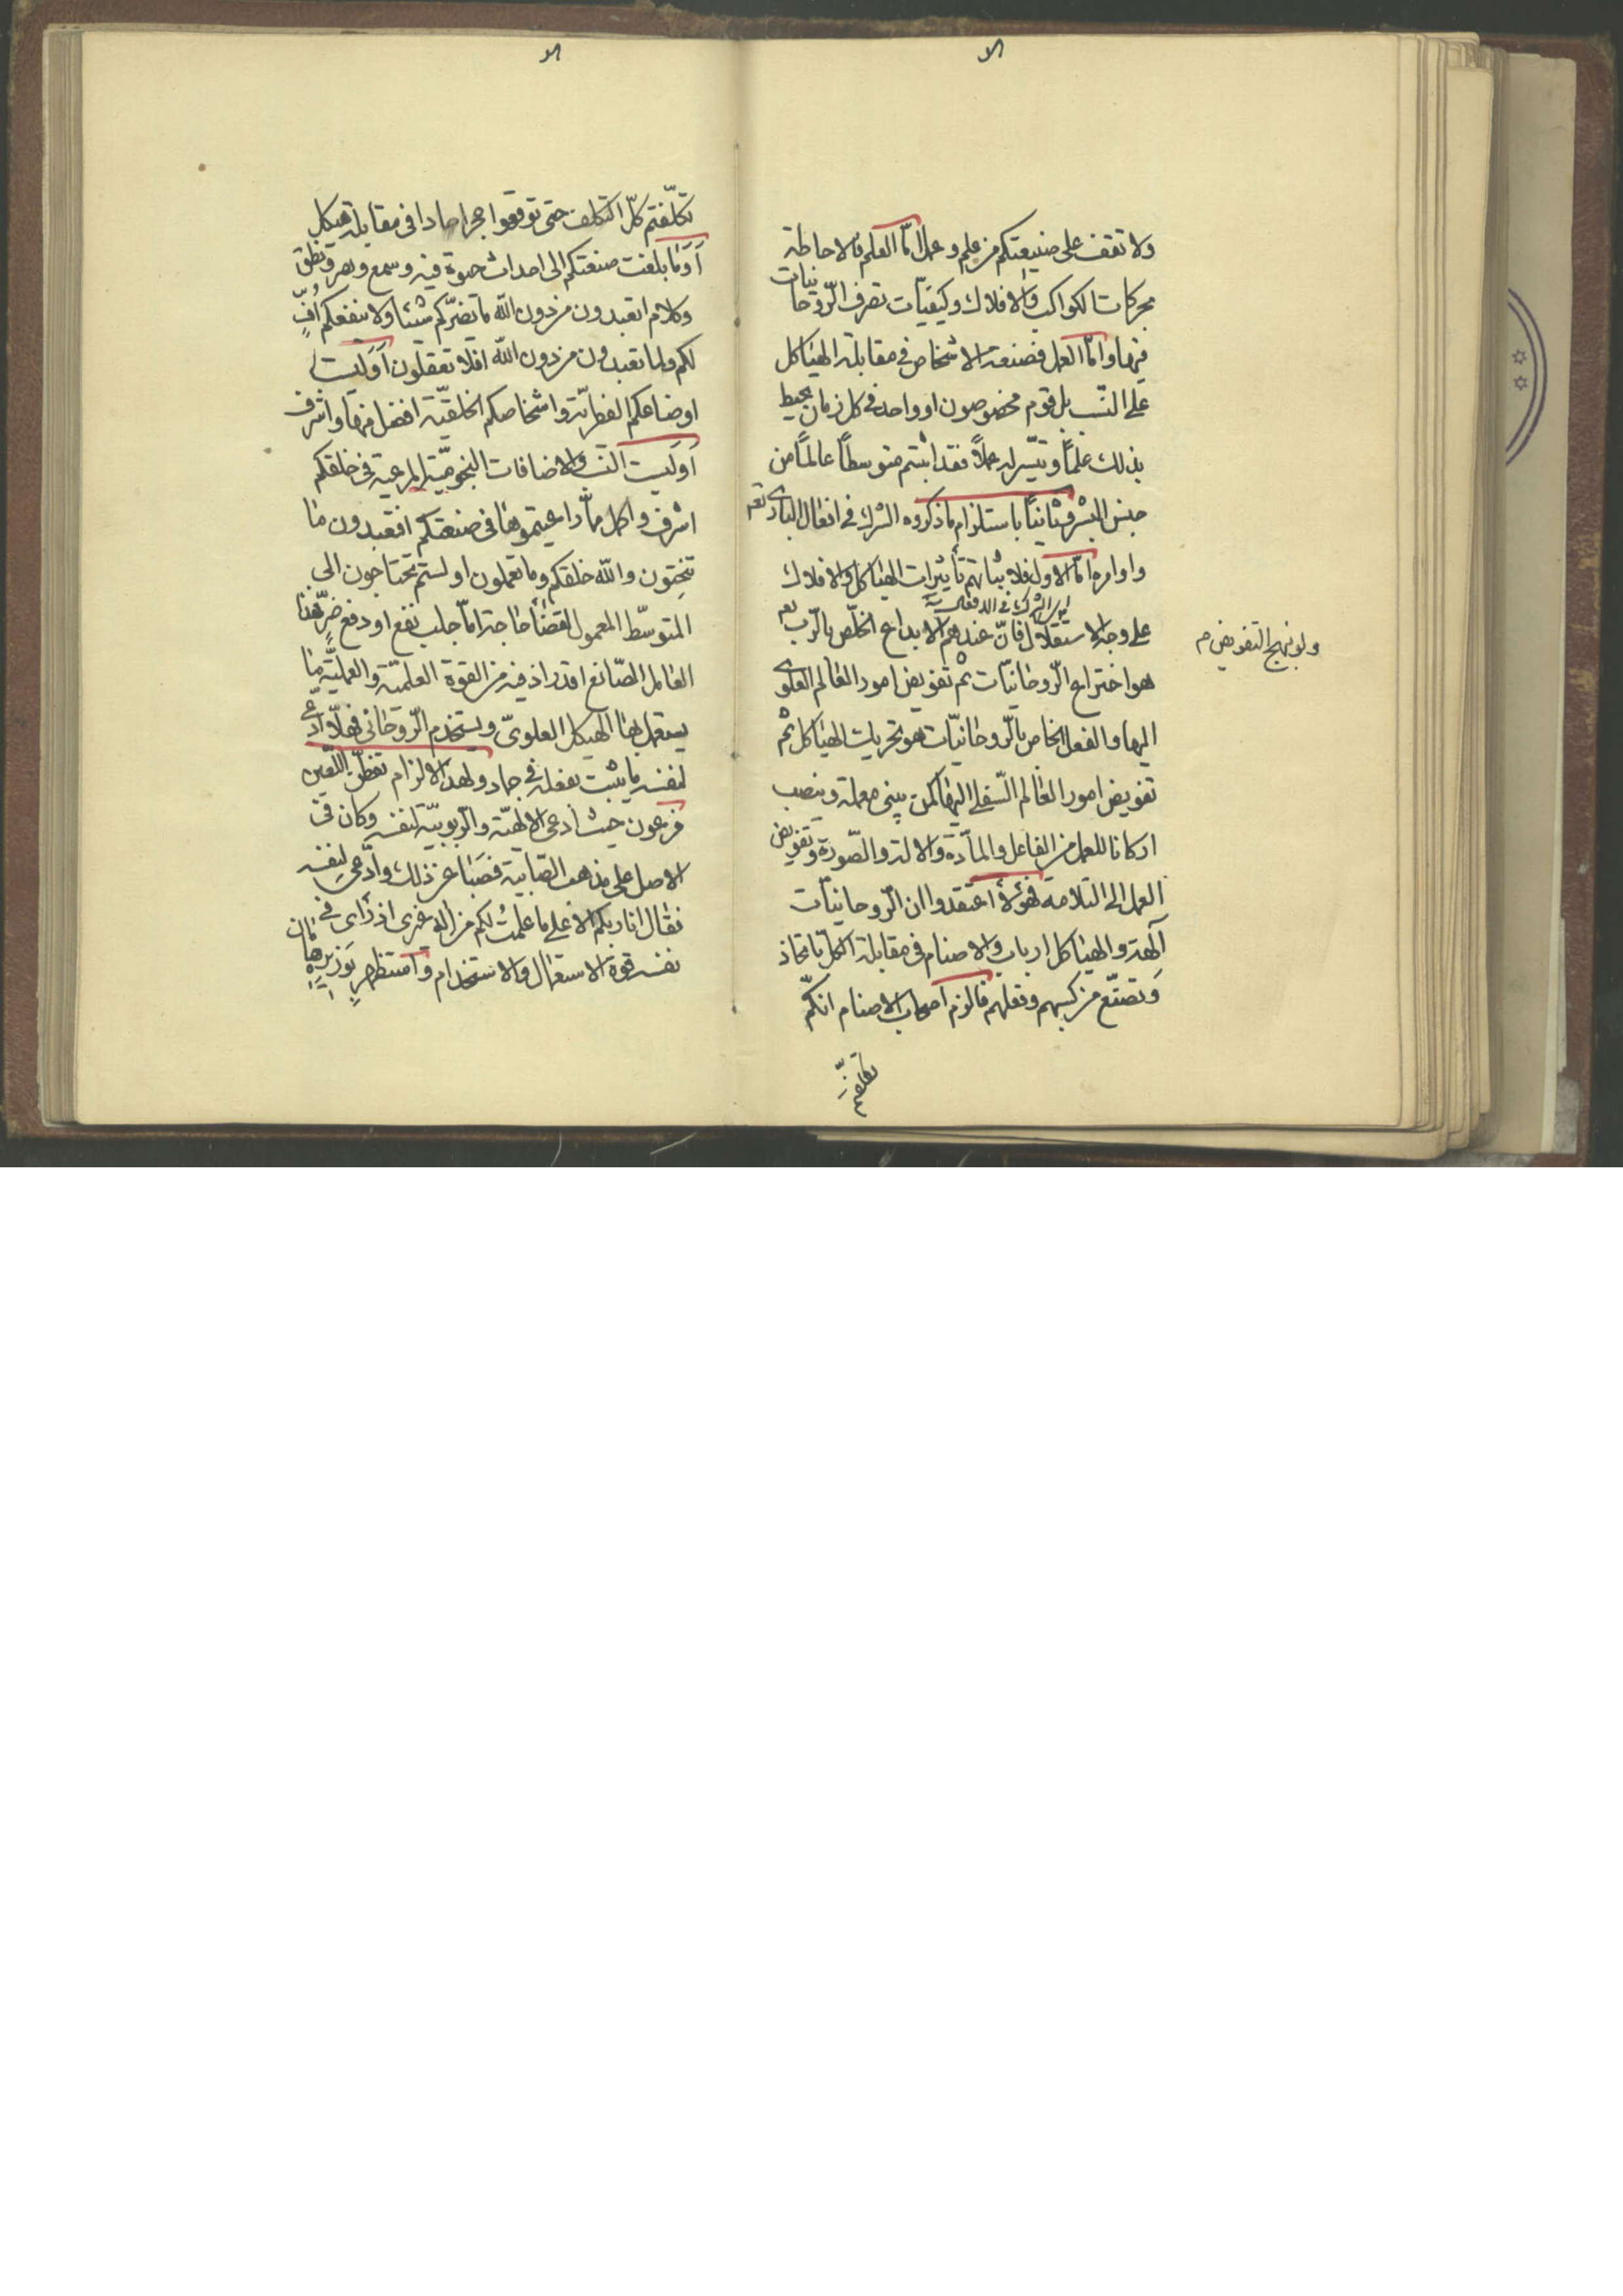 ولا تقف على صنيعتكم من علم وعمل امّا العلم فالاحاطة
بحركات الكواكب والافلاك وكيفيّات تصرف الرّوحانيات
فيها وامّا العمل فصنعة الاشخاص في مقابلة الهياكل
على النّسب بل قوم مخصوصون او واحد في كل زمان يحيط
بذلك علمًا وتيسّر له عملاً فقد اثبتم متوسطًا عالمًا من
جنس البشر وثانيًا باستلزام ما ذكروه الشرك في افعال الباري تعم
واوامره امّا الاول فلاثباتهم تأثيرات الهياكل والافلاك
على وجه الاستقلال فانّ عندهم الابداع الخاص بالرّب تعم
ولو بنهج التفويض م
هو اختراع الرّوحانيّات ثم تفويض امور العالم العلوي
اليها والفعل الخاص بالرّوحانيّات هو تحريك الهياكل ثم
تفويض امور العالم السّفلي اليها كمن يبني معملة وينصب
اركانا للعمل من الفاعل والمادّة والالة والصّورة وتفويض
العمل الى التلامذة فهؤلاء اعتقدوا ان الرّوحانيّات
آلهة والهياكل ارباب والاصنام في مقابلة الكل باتخاذ
وتصنّع من كسبهم وفعلهم فالزم اصحاب الاصنام انكم
تكلفتم
تكلّفتم كلّ التكلف حتى توقعوا حجرا جمادا في مقابلة هيكل
اَوَما بلغت صنعتكم الى احداث حيوة فيه وسمع وبصر ونطق
وكلام اتعبدون من دون الله ما يضرّكم شيئا ولا ينفعكم اُفٍّ
لكم ولما تعبدون من دون الله افلا تعقلون اَوَليست
اوضاعكم الفطريّة واشخاصكم الخلقيّة افضل منها واشرف
اَوَليست النسب والاضافات النجوميّة المرعية في خلقكم
اشرف واكمل ممّا راعيتموها في صنعتكم افتعبدون ما
تنحِتون والله خلقكم وما تعملون اولستم تحتاجون الى
المتوسّط المعمول لقضاء حاجة امّا جلب نفع او دفع ضرٍّ فهذا
العامل الصّانع اقدر اذ فيه من القوة العلميّة والعمليّة ما
يستعمل بها الهيكل العلويّ ويستخدم الرّوحاني فهلّا ادّعى
لنفسه ما يثبت بفعله في جماد ولهذا الالزام تفطّن اللّعين
فرعون حيث ادعى الالهيّة والرّبوبيّة لنفسه وكان في
الاصل على مذهب الصّابية فصبا عن ذلك وادّعى لنفسه
فقال انا ربكم الاعلى ما علمتُ لكم من اله غيري اذ رأى في
نفسه قوة الاستعمال والاستخدام واستظهر بوزيره هامان